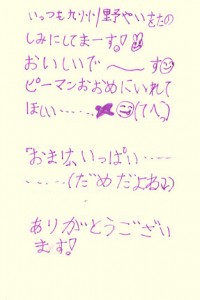 いっつも九州野やいをたの
しみにしてまーす。!
おいしいで〜〜す
ピーマンおおめにいれて
ほしい・・・・・・(てへっ)
「おまけ、いっぱい・・・・
・・・・・・・(だめだよね。)
ありがとうござい
ます!